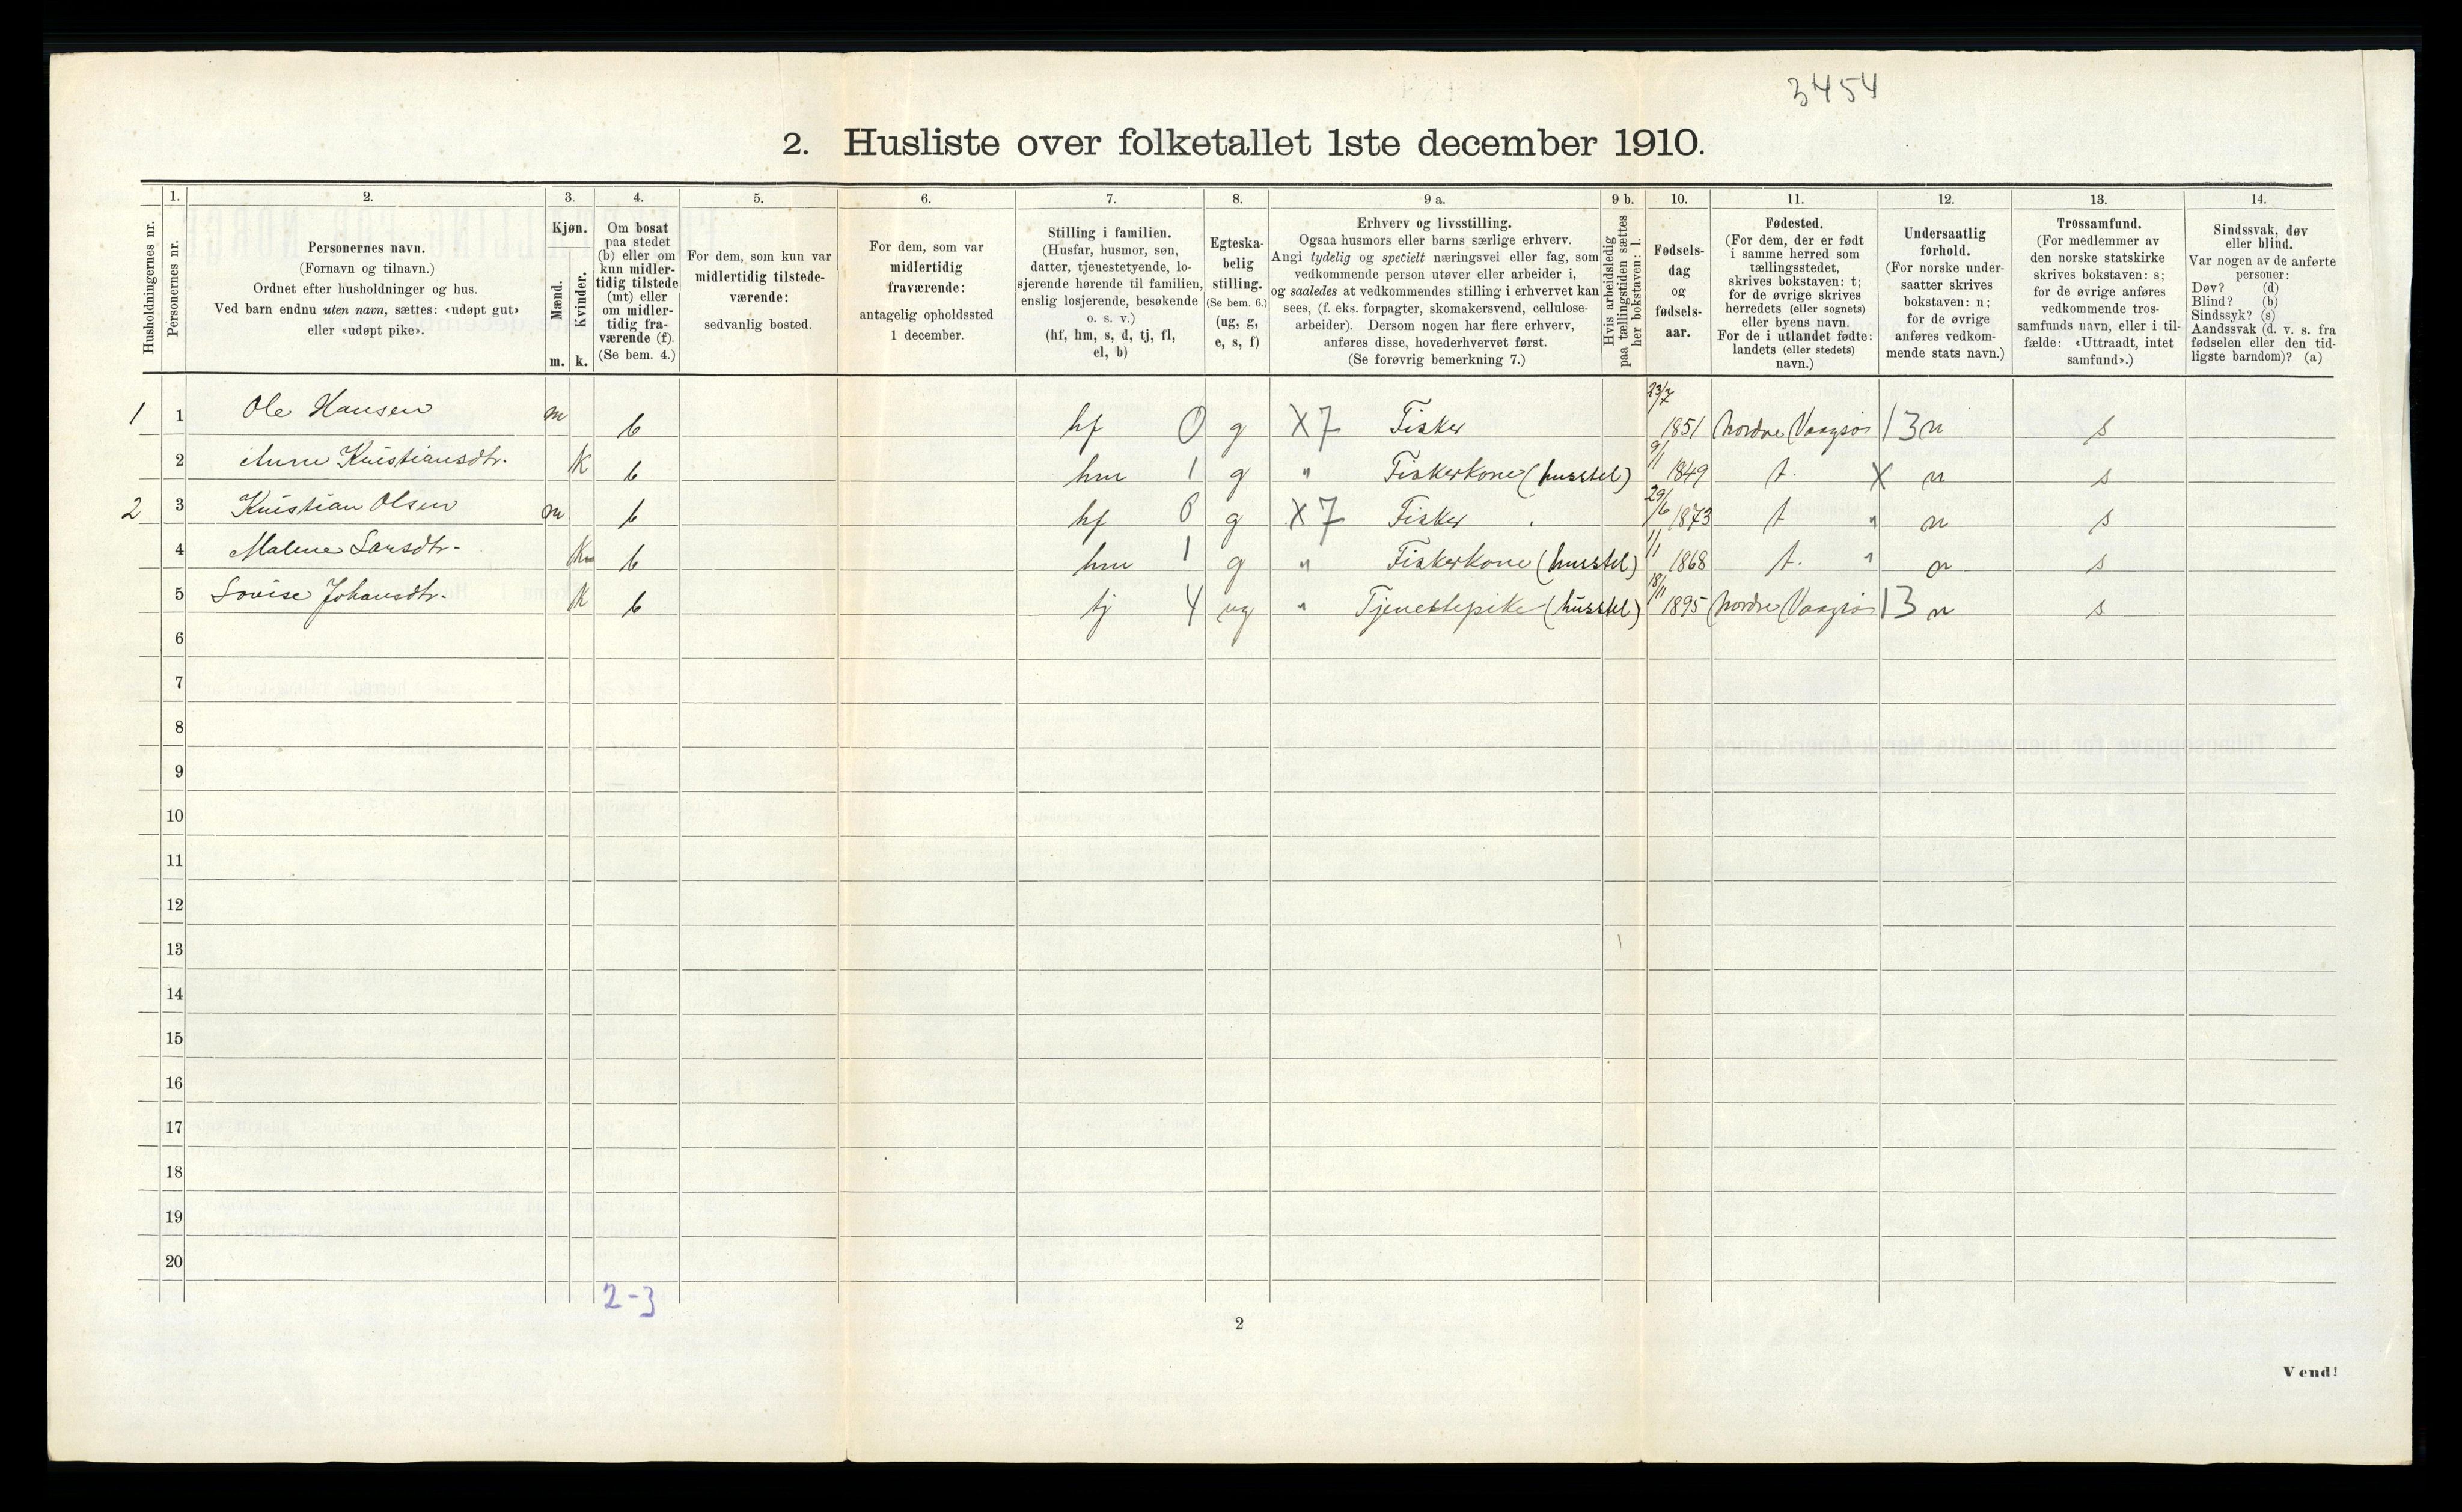 3454
2. Husliste over folketallet 1ste december 1910.
Husholdningernes nr.
1.
Personernes nr.
2.
Personernes navn.
(Fornavn og tilnavn.)
Ordnet efter husholdninger og hus.
Ved barn endnu uten navn, sættes: «udøpt gut»
eller «udøpt pike».
3.
Kjøn.
Mænd.
Kvinder.
m. k.
4.
Om bosat
paa stedet
(b) eller om
kun midler-
tidig tilstede
(mt) eller
om midler-
tidig fra-
værende (f).
(Se bem. 4.)
5.
For dem, som kun var
midlertidig tilstede-
værende:
sedvanlig bosted.
6.
For dem, som var
midlertidig
fraværende:
antagelig opholdssted
1 december.
7.
Stilling i familien.
(Husfar, husmor, søn,
datter, tjenestetyende, lo-
sjerende hørende til familien,
enslig losjerende, besøkende
o. s. v.)
(hf, hm, s, d, tj, fl,
el, b)
8.
Egteska-
belig
stilling.
(Se bem. 6.)
(ug, g,
e, s, f)
9 a.
Erhverv og livsstilling.
Ogsaa husmors eller barns særlige erhverv.
Angi tydelig og specielt næringsvei eller fag, som
vedkommende person utøver eller arbeider i,
og saaledes at vedkommendes stilling i erhvervet kan
sees, (f. eks. forpagter, skomakersvend, cellulose-
arbeider). Dersom nogen har flere erhverv,
anføres disse, hovederhvervet først.
(Se forøvrig bemerkning 7.)
9 b.
Hvis arbeidsledig
paa tællingstiden sættes
her bokstaven: l.
10.
Fødsels-
dag
og
fødsels-
aar.
11.
Fødested.
(For dem, der er født
i samme herred som
tællingsstedet,
skrives bokstaven: t;
for de øvrige skrives
herredets (eller sognets)
eller byens navn.
For de i utlandet fødte:
landets (eller stedets)
navn.)
12.
Undersaatlig
forhold.
(For norske under-
saatter skrives
bokstaven: n;
for de øvrige
anføres vedkom-
mende stats navn.)
13.
Trossamfund.
(For medlemmer av
den norske statskirke
skrives bokstaven: s;
for de øvrige anføres
vedkommende tros-
samfunds navn, eller i til-
fælde: «Uttraadt, intet
samfund».)
14.
Sindssvak, døv
eller blind.
Var nogen av de anførte
personer:
Døv? (d)
Blind? (b)
Sindssyk? (s)
Aandssvak (d. v. s. fra
fødselen eller den tid-
ligste barndom)? (a)
1 1 Ole Hansen m b hf 0 g X7 Fisker 23/7 1851 Nordre Vaagsø 13 n s
2 Anne Kristiansdtr. k b hm 1 g " Fiskerkone (husstel) 9/1 1849 t. X n s
2 3 Kristian Olsen m b hf 0 g X7 Fisker 29/6 1873 t " n s
4 Malene Larsdtr. k b hm 1 g " Fiskerkone (husstel) 1/1 1868 t. " n s
5 Lovise Johansdtr. k b tj 4 ug " Tjenestepike (husstel) 18/11 1895 Nordre Vaagsø 13 n s
6
7
8
9
10
11
12
13
14
15
16
17
18
19
20
2-3
2
Vend!